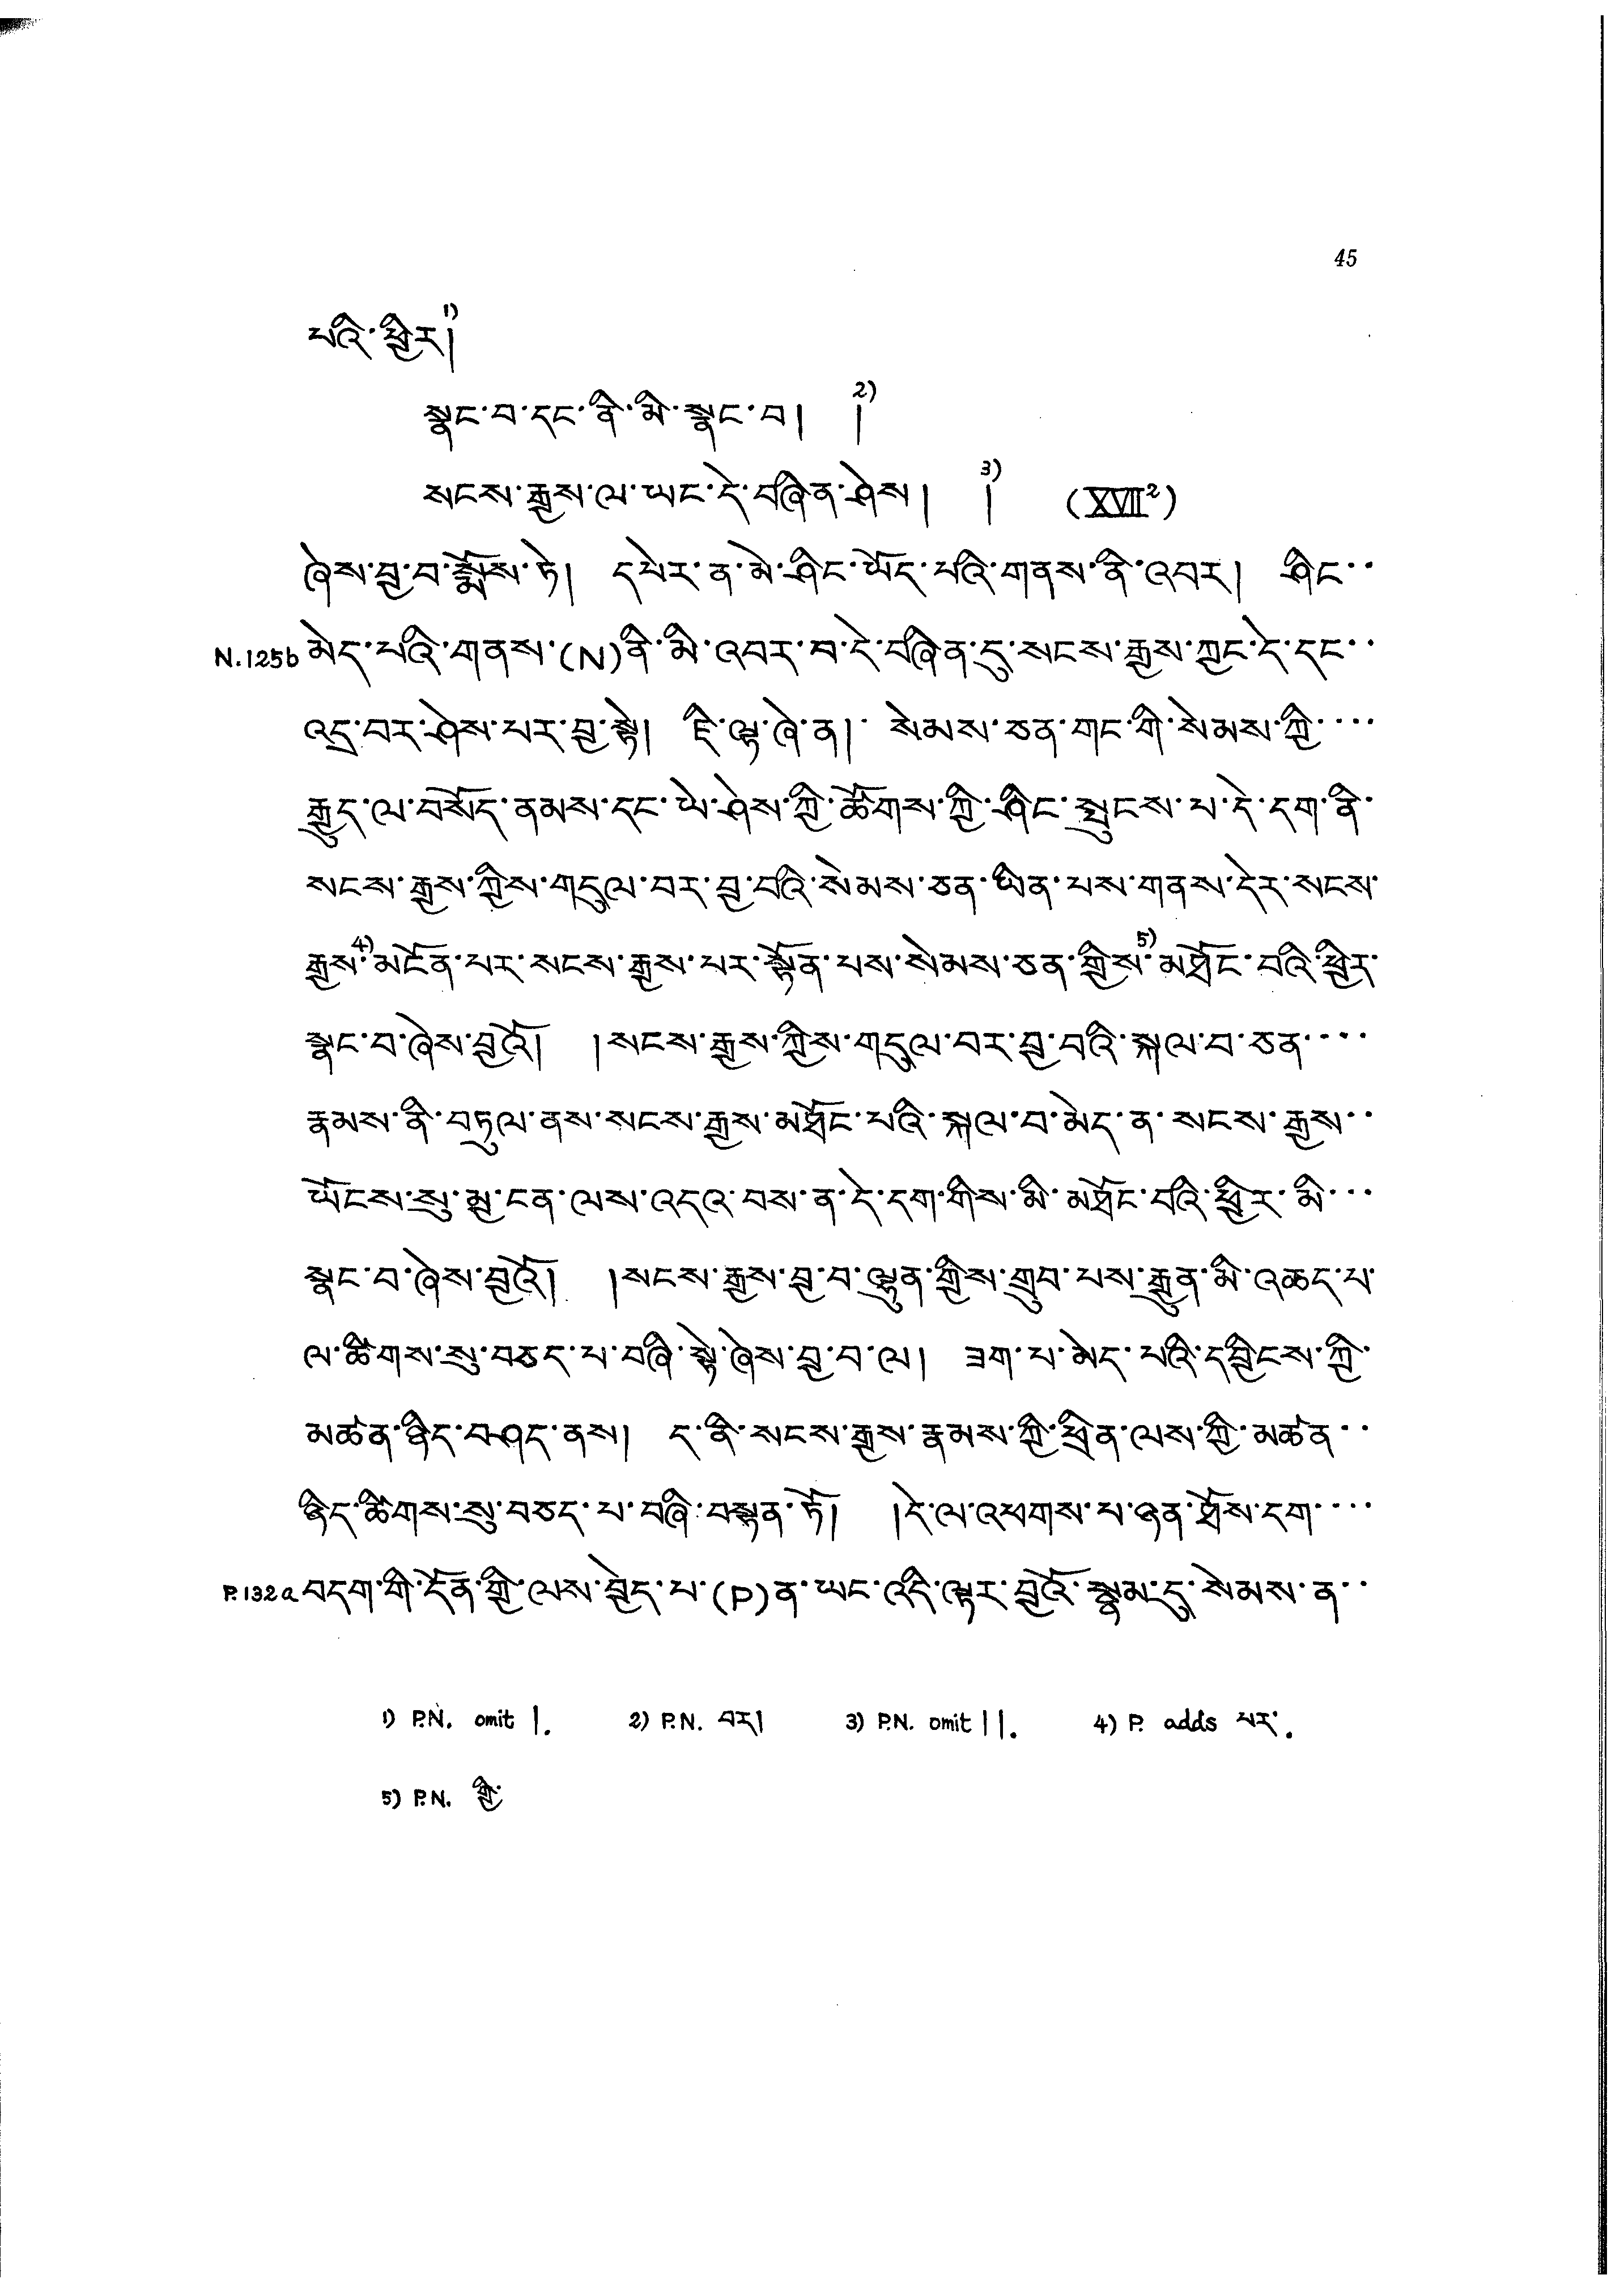 45
པའི་ཕྱིར།1)
སྣང་བ་དང་ནི་མི་སྣང་བ། །2)
སངས་རྒྱས་ལ་ཡང་དེ་བཞིན་ཤེས། །3) (XVII2)
ཞེས་བྱ་བ་སྨོས་ཏེ། དཔེར་ན་མེ་ཤིང་ཡོད་པའི་གནས་ནི་འབར། ཤིང་..
N.125b མེད་པའི་གནས་(N)ནི་མི་འབར་བ་དེ་བཞིན་དུ་སངས་རྒྱས་ཀྱང་དེ་དང་..
འདྲ་བར་ཤེས་པར་བྱ་སྟེ། ཇི་ལྟ་ཞེ་ན། སེམས་ཅན་གང་གི་སེམས་ཀྱི....
རྒྱུད་ལ་བསོད་ནམས་དང་ཡེ་ཤེས་ཀྱི་ཚོགས་ཀྱི་ཤིང་སྤུངས་པ་དེ་དག་ནི་
སངས་རྒྱས་ཀྱིས་གདུལ་བར་བྱ་བའི་སེམས་ཅན་ཡིན་པས་གནས་དེར་སངས་
རྒྱས་4)མངོན་པར་སངས་རྒྱས་པར་སྟོན་པས་སེམས་ཅན་གྱིས་5)མཐོང་བའི་ཕྱིར་
སྣང་བ་ཞེས་བྱའོ། །སངས་རྒྱས་ཀྱིས་གདུལ་བར་བྱ་བའི་སྐལ་བ་ཅན....
རྣམས་ནི་བཏུལ་ནས་སངས་རྒྱས་མཐོང་པའི་སྐལ་བ་མེད་ན་སངས་རྒྱས..
ཡོངས་སུ་མྱ་ངན་ལས་འདའ་བས་ན་དེ་དག་གིས་མི་མཐོང་བའི་ཕྱིར་མི...
སྣང་བ་ཞེས་བྱའོ། །སངས་རྒྱས་བྱ་བ་ལྷུན་གྱིས་གྲུབ་པས་རྒྱུན་མི་འཆད་པ་
ལ་ཚིགས་སུ་བཅད་པ་བཞི་སྟེ་ཞེས་བྱ་བ་ལ། ཟག་པ་མེད་པའི་དབྱིངས་ཀྱི་
མཚན་ཉིད་བཤད་ནས། ད་ནི་སངས་རྒྱས་རྣམས་ཀྱི་ཕྲིན་ལས་ཀྱི་མཚན..
ཉིད་ཚིགས་སུ་བཅད་པ་བཞི་བསྟན་ཏོ། །དེ་ལ་འཕགས་པ་ཉན་ཐོས་དག....
P.132a བདག་གི་དོན་གྱི་ལས་བྱེད་པ་(P)ན་ཡང་འདི་ལྟར་བྱའོ་སྙམ་དུ་སེམས་ན..
1) P.N. omit །. 2) P.N. བར། 3) P.N. omit ། །. 4) P. adds པར་.
5) P.N. གྱི་